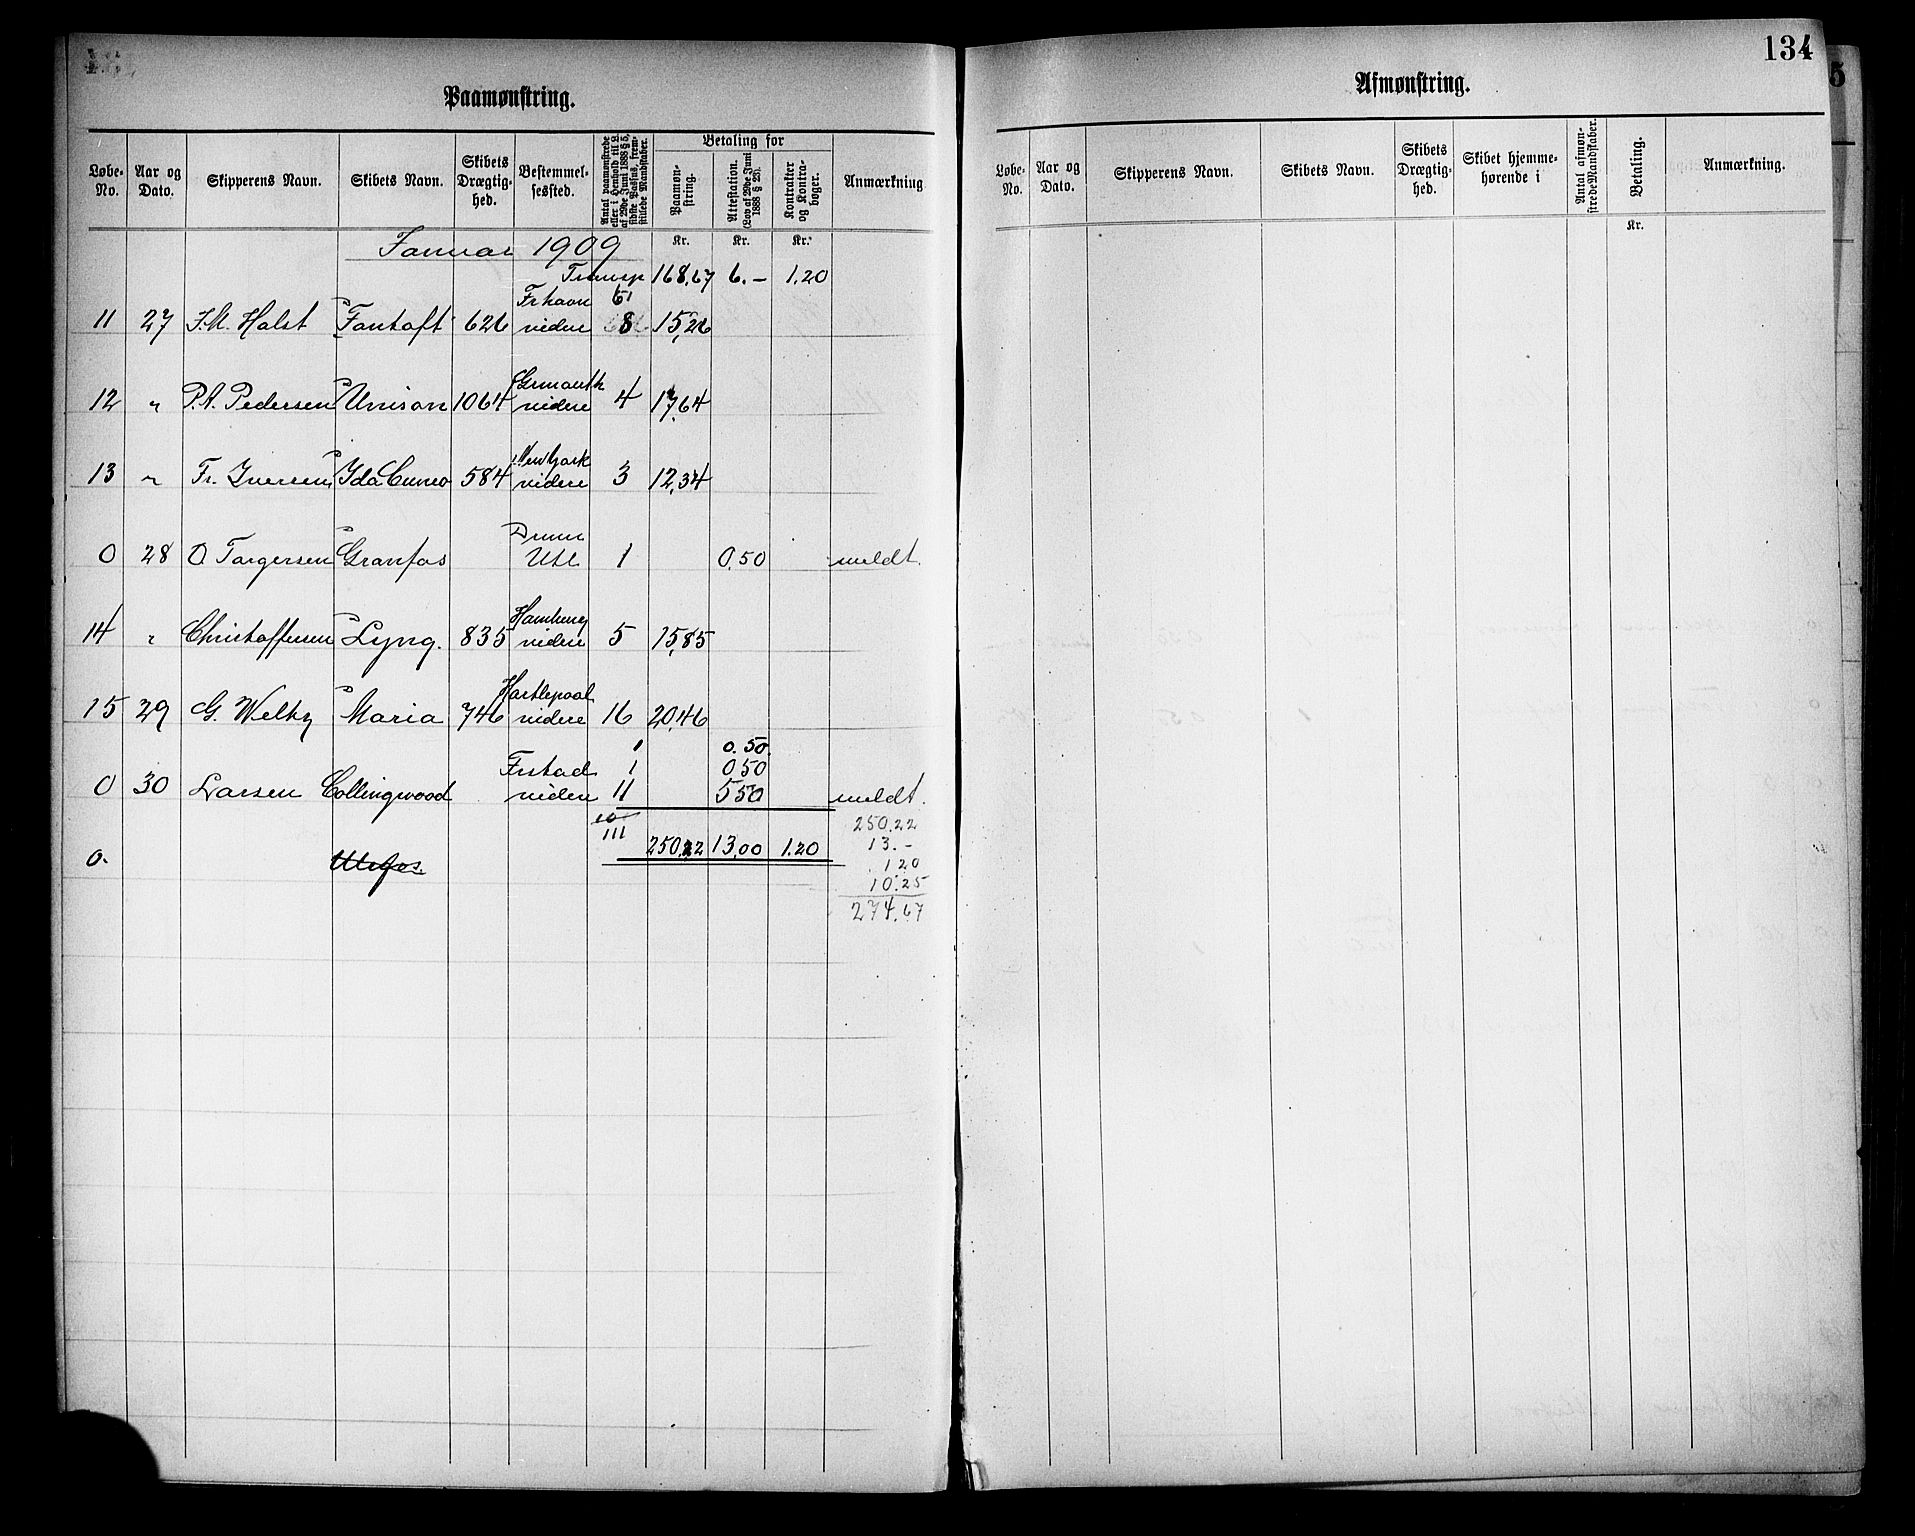 Paamønstring.
Løbe-No.
Aar og Dato.
Skipperens Navn.
Skibets Navn.
Skibets Drægtig-hed.
Bestemmel-sessted.
Antal paamønstrede eller i Henhold til L. af 29de Juni 1888 § 5, sidste Passus, frem-stillede Mandskaber.
Betaling for
Paamøn-string.
Attestation. (Lov af 29de Juni 1888 § 25).
Kontrakter og Kontra-bøger.
Anmærkning
Kr. Kr. Kr.
Januar 1909
Transp 168.67 6.- 1.20
Frhavn
11 27 J.M. Holst Fantoft 626 videre 8 15,26
Grimouth
12 " P.A. Pedersen Unison 1064 videre 4 17,64
New York
13 " Fr. Iversen Ida Cuneo 584 videre 3 12,34
0 28 O Torgersen Granfos Utl 1 0.50 meldt.
Hamburg
14 " Christoffersen Lyng. 835 videre 5 15,85
Hartlepool
15 29 G. Welhy Maria 746 videre 16 20,46
1 0.50.
Frstad 1 050
0 30 Larsen Collingwood videre 11 550 meldt.
10
111 250,22 13,00 1.20
0. Ulefos.
250.22
13.-
1.20
10.25
274.67
134
Afmønstring.
Løbe-No.
Aar og Dato.
Skipperens Navn.
Skibets Navn.
Skibets Drægtig-hed.
Skibet hjemme-hørende i
Antal afmøn-strede Mandskaber.
Betaling.
Anmærkning.
Kr.
5